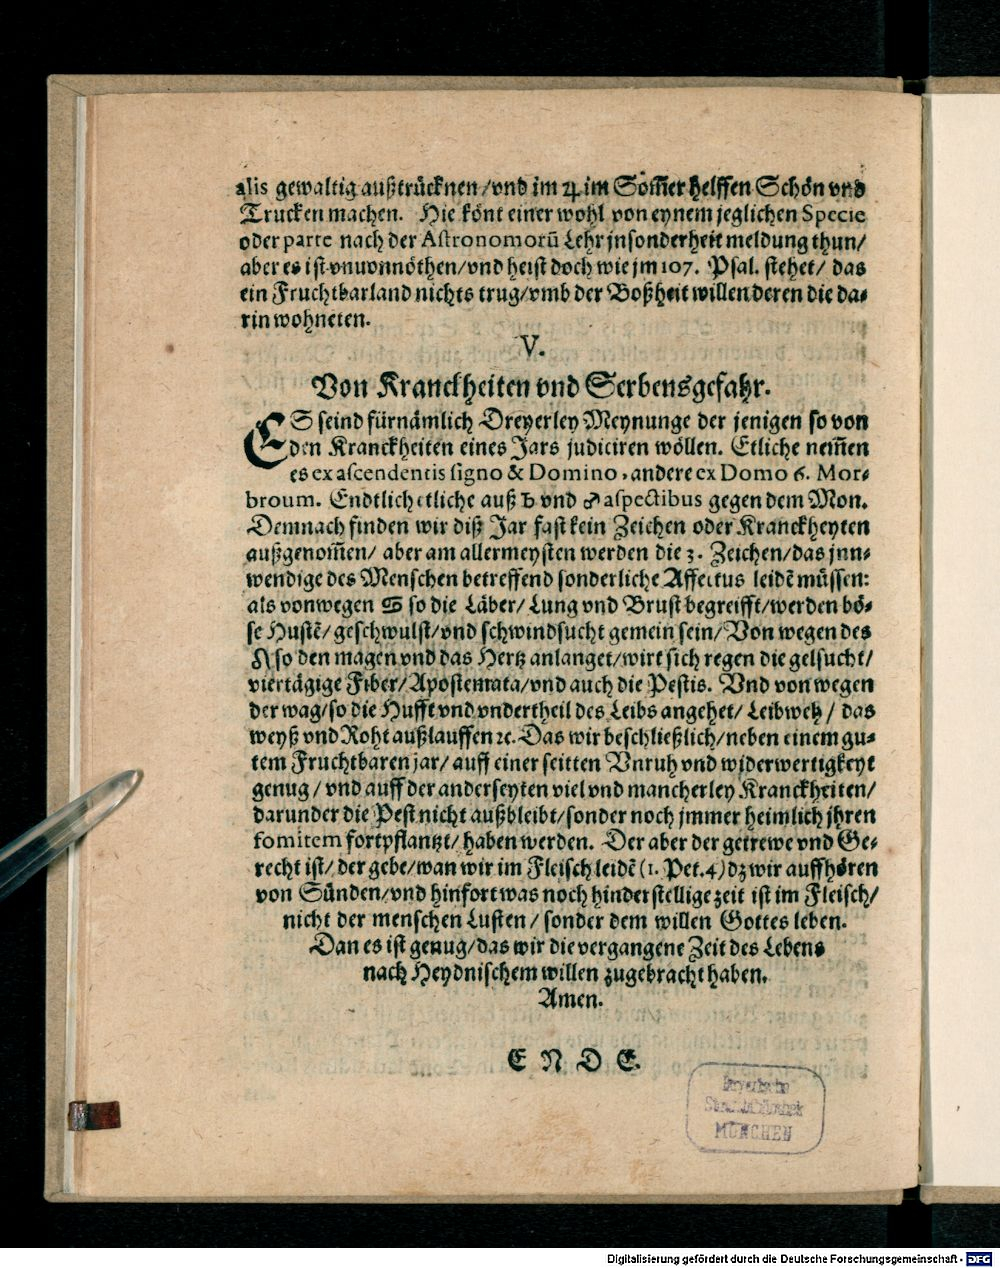 alis gewaltig außtrücknen/vnd im ♃ im Som̃er helffen Schön vnd
Trucken machen. Hie könt einer wohl von eynem jeglichen Specie
oder parte nach der Astronomorũ Lehr jnsonderheit meldung thun/
aber es ist vnuonnöthen/vnd heist doch wie jm 107. Psal. stehet/ das
ein Fruchtbarland nichts trug/vmb der Boßheit willen deren die da-
rin wohneten.
V.
Von Kranckheiten vnd Serbensgefahr.
ES seind fürnämlich Dreyerley Meynunge der jenigen so von
den Kranckheiten eines Jars judiciren wöllen. Etliche nem̃en
es ex ascendentis signo & Domino, andere ex Domo 6. Mor-
broum. Endtlich etliche auß ♄ vnd ♂ aspectibus gegen dem Mon.
Demnach finden wir diß Jar fast kein Zeichen oder Kranckheyten
außgenom̃en/ aber am allermeysten werden die 3. Zeichen/das jnn-
wendige des Menschen betreffend sonderliche Affectus leidẽ müssen:
als vonwegen ♋ so die Läber/ Lung vnd Brust begreifft/werden bö-
se Hustẽ/ geschwulst/vnd schwindsucht gemein sein/ Von wegen des
♌ so den magen vnd das Hertz anlanget/wirt sich regen die gelsucht/
viertägige Fiber/Apostemata/vnd auch die Pestis. Vnd von wegen
der wag/so die Hufft vnd vndertheil des Leibs angehet/ Leibweh/ das
weyß vnd Roht außlauffen ꝛc. Das wir beschließlich/neben einem gu-
tem Fruchtbaren jar/ auff einer seitten Vnruh vnd widerwertigkeyt
genug/ vnd auff der anderseyten viel vnd mancherley Kranckheiten/
darunder die Pest nicht außbleibt/sonder noch jmmer heimlich jhren
fomitem fortpflantzt/ haben werden. Der aber der getrewe vnd Ge-
recht ist/ der gebe/wan wir im Fleisch leidẽ (1. Pet. 4) dz wir auffhören
von Sünden/vnd hinfort was noch hinderstellige zeit ist im Fleisch/
nicht der menschen Lusten/ sonder dem willen Gottes leben.
Dan es ist genug/das wir die vergangene Zeit des Lebens
nach Heydnischem willen zugebracht haben.
Amen.
E N D E.
Bayerische
Staatsbibliothek
MÜNCHEN
Digitalisierung gefördert durch die Deutsche Forschungsgemeinschaft - DFG